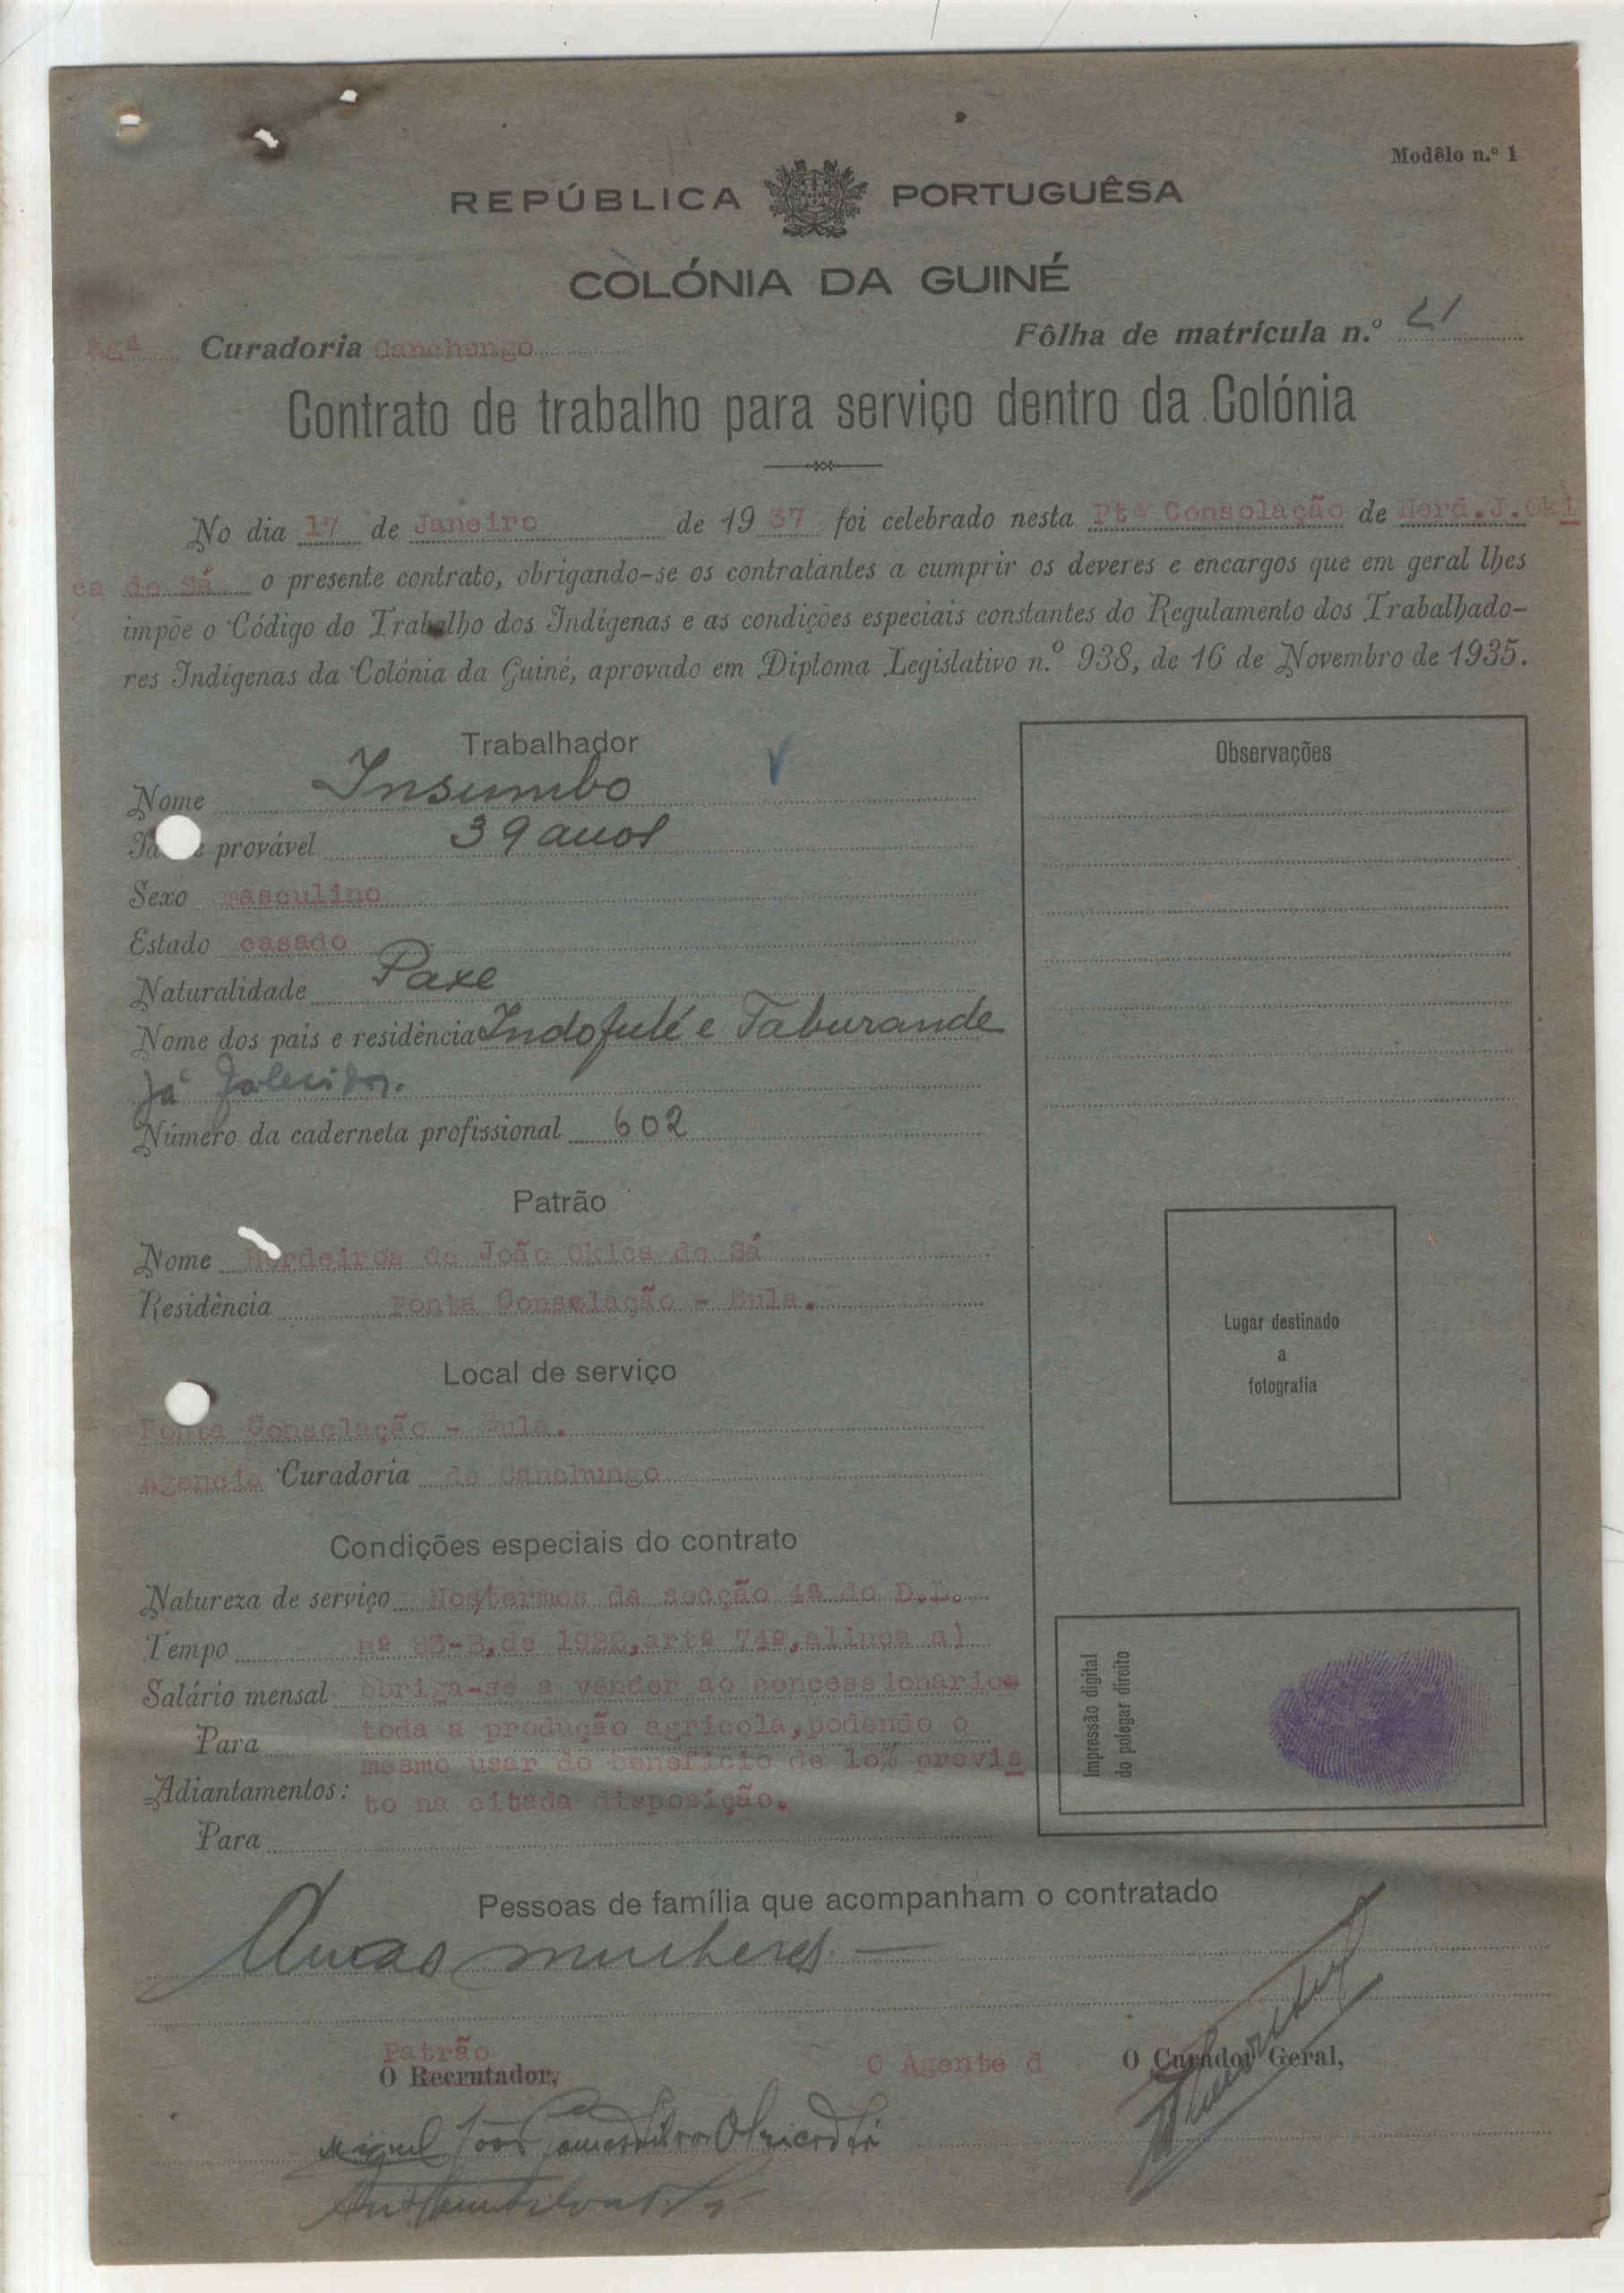 Modêlo n.º 1
REPÚBLICA PORTUGUÊSA
COLÓNIA DA GUINÉ
Agª Curadoria Canchungo Fôlha de matrícula n.º 21
Contrato de trabalho para serviço dentro da Colónia
No dia 17 de Janeiro de 1937 foi celebrado nesta Ptª Consolação de Herd.J.Oki
ca de Sá o presente contrato, obrigando-se os contratantes a cumprir os deveres e encargos que em geral lhes
impõe o Código do Trabalho dos Indígenas e as condições especiais constantes do Regulamento dos Trabalhado-
res Indígenas da Colónia da Guiné, aprovado em Diploma Legislativo n.º 938, de 16 de Novembro de 1935.
Trabalhador
Nome Insumbo
provável 39 anos
Sexo masculino
Estado casado
Naturalidade Paxe
Nome dos pais e residência Indofulé e Taburande
já falecidos.
Número da caderneta profissional 602
Patrão
Nome Herdeiros de João Okica de Sá
Residência Ponta Consolação - Bula.
Local de serviço
Ponta Consolação - Bula.
Agencia Curadoria de Canchungo
Condições especiais do contrato
Natureza de serviço Nos/termos da secção 4ª do D.L.
Tempo nº 83-B, de 1922, artº 74º, alinea a)
Salário mensal obriga-se a vender ao concessionarios
Para toda a produção agricola, podendo o
mesmo usar do beneficio de 10% previs
Adiantamentos: to na citada disposição.
Para
Observações
Lugar destinado
a
fotografia
Impressão digital
do polegar direito
Pessoas de família que acompanham o contratado
Duas mulheres —
Patrão
O Recrutador,
O Agente d O Curador Geral,
Miguel João